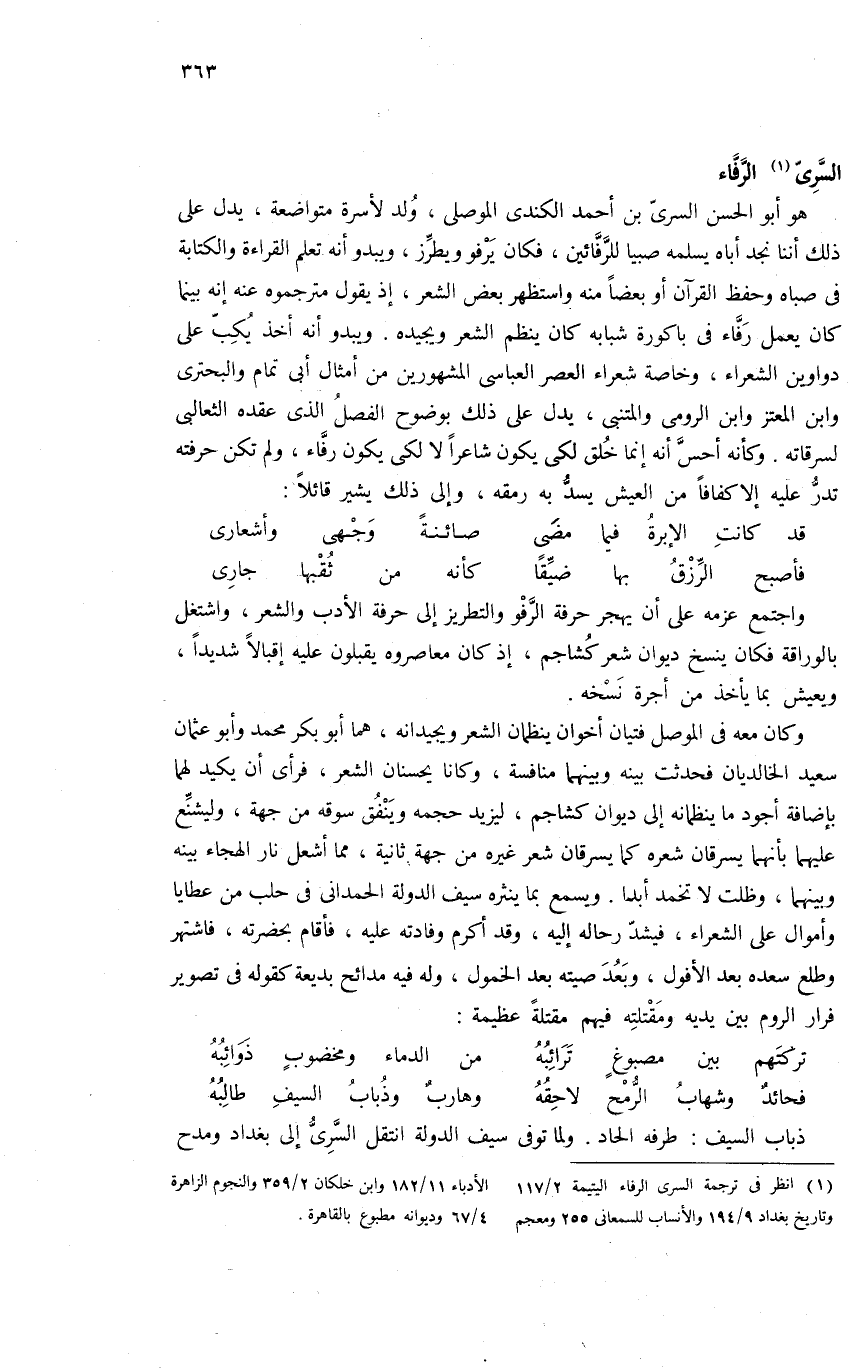 ٣٦٣
السَّرِىّ (١) الرَّفَّاء
هو أبو الحسن السرىّ بن أحمد الكندى الموصلى ، وُلد لأسرة متواضعة ، يدل على
ذلك أننا نجد أباه يسلمه صبيا للرَّفَّائين ، فكان يَرْفو ويطرِّز ، ويبدو أنه تعلم القراءة والكتابة
فى صباه وحفظ القرآن أو بعضاً منه واستظهر بعض الشعر ، إذ يقول مترجموه عنه إنه بينما
كان يعمل رَفَّاء فى باكورة شبابه كان ينظم الشعر ويجيده . ويبدو أنه أخذ يُكِبّ على
دواوين الشعراء ، وخاصة شعراء العصر العباسى المشهورين من أمثال أبى تمام والبحترى
وابن المعتز وابن الرومى والمتنبى ، يدل على ذلك بوضوح الفصلُ الذى عقده الثعالبى
لسرقاته . وكأنه أحسَّ أنه إنما خُلق لكى يكون شاعراً لا لكى يكون رفَّاء ، ولم تكن حرفته
تدرُّ عليه إلا كفافاً من العيش يسدُّ به رمقه ، وإلى ذلك يشير قائلاً :
قد كانتِ الإبرةُ فيما مضَى صائنةً وَجْهى وأشعارى
فأصبح الرِّزْقُ بها ضيِّقًا كأنه من ثُقْبها جارِى
واجتمع عزمه على أن يهجر حرفة الرَّفْو والتطريز إلى حرفة الأدب والشعر ، واشتغل
بالوراقة فكان ينسخ ديوان شعر كُشاجم ، إذ كان معاصروه يقبلون عليه إقبالاً شديداً ،
ويعيش بما يأخذ من أجرة نَسْخه .
وكان معه فى الموصل فتيان أخوان ينظمان الشعر ويجيدانه ، هما أبو بكر محمد وأبو عثمان
سعيد الخالديان فحدثت بينه وبينهما منافسة ، وكانا يحسنان الشعر ، فرأى أن يكيد لهما
بإضافة أجود ما ينظمانه إلى ديوان كشاجم ، ليزيد حجمه ويَنْفُق سوقه من جهة ، وليشنِّع
عليهما بأنهما يسرقان شعره كما يسرقان شعر غيره من جهة ثانية ، مما أشعل نار الهجاء بينه
وبينهما ، وظلت لا تخمد أبدا . ويسمع بما ينثره سيف الدولة الحمدانى فى حلب من عطايا
وأموال على الشعراء ، فيشدّ رحاله إليه ، وقد أكرم وفادته عليه ، فأقام بحضرته ، فاشتهر
وطلع سعده بعد الأفول ، وبَعُدَ صيته بعد الخمول ، وله فيه مدائح بديعة كقوله فى تصوير
فرار الروم بين يديه ومَقْتلتِه فيهم مقتلةً عظيمة :
تركتَهم بين مصبوغٍ تَرَائِبُهُ من الدماء ومخضوبٍ ذَوَائِبُهُ
فحائدٌ وشهابُ الرُّمْح لاحِقُهُ وهاربٌ وذُبابُ السيفِ طالِبُهُ
ذباب السيف : طرفه الحاد . ولما توفى سيف الدولة انتقل السَّرِىُّ إلى بغداد ومدح
(١) انظر فى ترجمة السرى الرفاء اليتيمة ١١٧/٢
وتاريخ بغداد ١٩٤/٩ والأنساب للسمعانى ٢٥٥ ومعجم
الأدباء ١٨٢/١١ وابن خلكان ٣٥٩/٢ والنجوم الزاهرة
٦٧/٤ وديوانه مطبوع بالقاهرة .